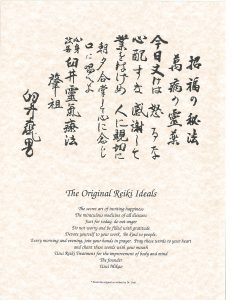 招福の秘法
萬病の霊薬
今日丈けは 怒るな
心配すな 感謝して
業をはげめ 人に親切に
朝夕合掌して心に念じ
口に唱へよ
心身改善 臼井靈氣療法
肇祖
臼井甕男
The Original Reiki Ideals
The secret art of inviting happiness
The miraculous medicine of all diseases
Just for today, do not anger
Do not worry and be filled with gratitude
Devote yourself to your work. Be kind to people.
Every morning and evening, join your hands in prayer. Pray these words to your heart
and chant these words with your mouth
Usui Reiki Treatment for the improvement of body and mind
The founder
Usui Mikao